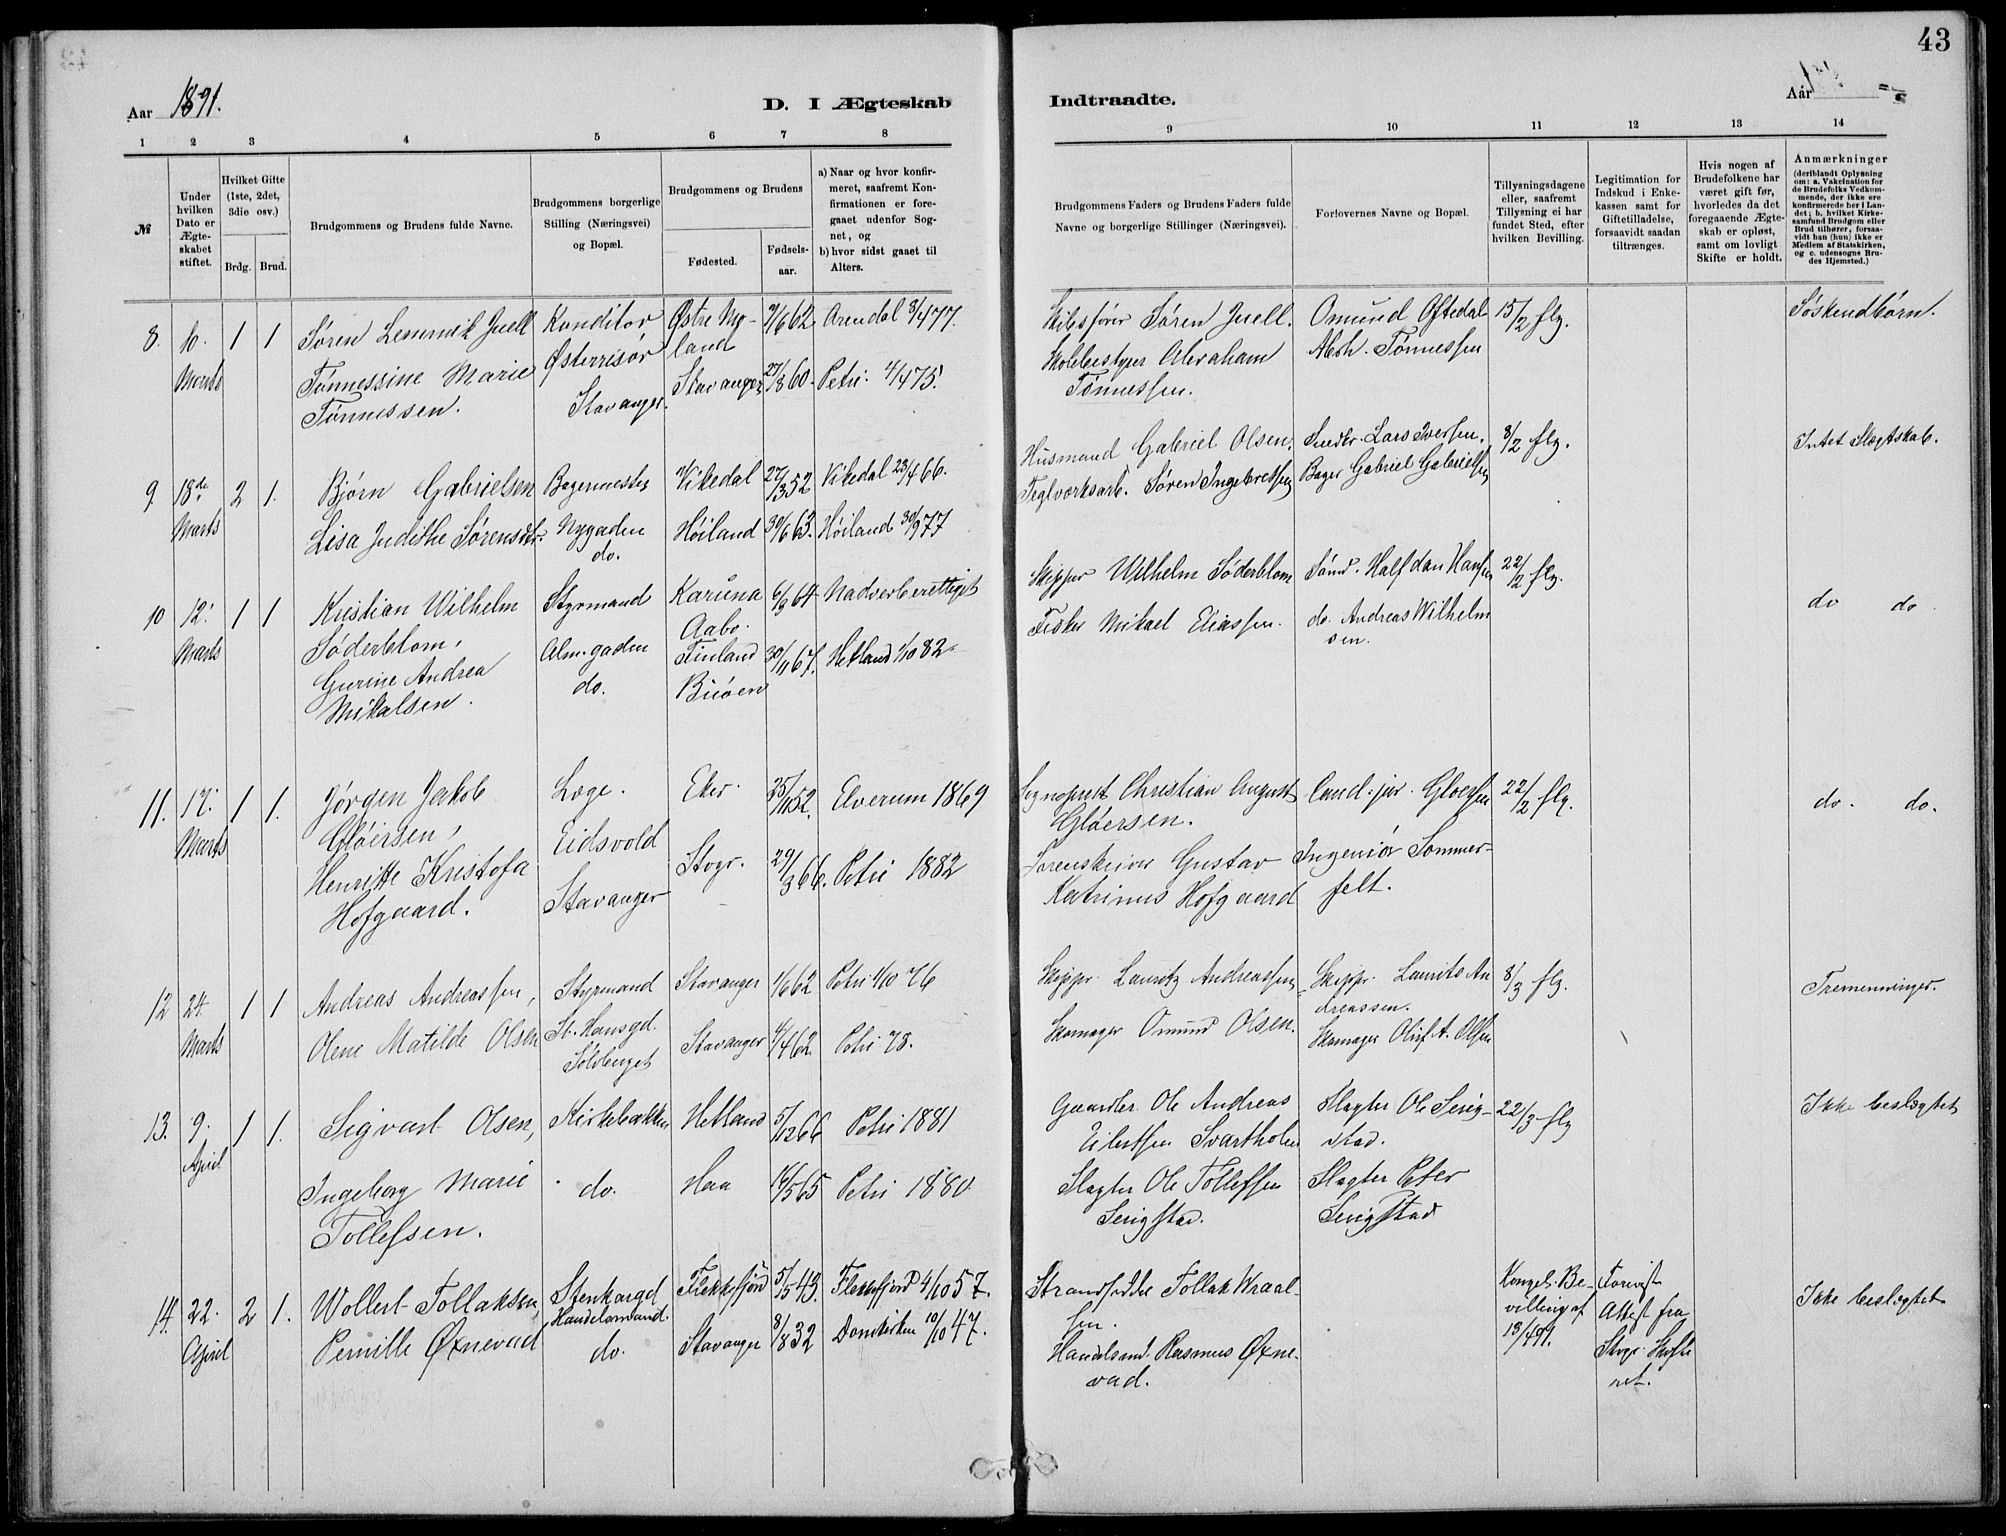 43
Aar 1891.
D. I Ægteskab
Indtraadte.
Aar
1 2 3 4 5 6 7 8
9 10 11 12 13 14
№
Under hvilken Dato er Ægteskabet stiftet.
Hvilket Gifte (1ste, 2det, 3die osv.)
Brdg. Brud.
Brudgommens og Brudens fulde Navne.
Brudgommens borgerlige Stilling (Næringsvei) og Bopæl.
Brudgommens og Brudens
Fødested.
Fødselsaar.
a) Naar og hvor konfirmeret, saafremt Konfirmationen er foregaaet udenfor Sognet, og
b) hvor sidst gaaet til Alters.
Brudgommens Faders og Brudens Faders fulde Navne og borgerlige Stillinger (Næringsvei).
Forlovernes Navne og Bopæl.
Tillysningsdagene eller, saafremt Tillysning ei har fundet Sted, efter hvilken Bevilling.
Legitimation for Indskud i Enkekassen samt for Giftetilladelse, forsaavidt saadan tiltrænges.
Hvis nogen af Brudefolkene har været gift før, hvorledes da det foregaaende Ægteskab er opløst, samt om lovligt Skifte er holdt.
Anmærkninger
(deriblandt Oplysning om: a. Vakcination for de Brudefolks Vedkommende, der ikke ere konfirmerede her i Landet; b, hvilket Kirkesamfund Brudgom eller Brud tilhører, forsaavidt han (hun) ikke er Medlem af Statskirken, og c. udensogns Brudes Hjemsted.)
8. Marts 1 1
Søren Lemmik Juell
Tønnessine Marie
Tønnessen.
Konditor
Østerrisør
Stavanger.
Østre Moland 7/6 62. Arendal 8/4 77.
Stavanger 27/8 60. Petri: 4/4 75.
Skibsfører Søren Juell.
Skolebestyrer Abraham
Tønnessen.
Omund Oftedal
Abrh. Tønnessen
15/2 flg.
Søskendbørn.
9 18de Marts 2 1.
Bjørn Gabrielsen
Lisa Judithe Sørensdtr.
Bagermester
Nygaden
do.
Vikedal 27/3 52 Vikedal 23/4 66.
Høiland 30/6 63. Høiland 30/9 77
Husmand Gabriel Olsen.
Teglværksarb. Søren Ingebretsen
Snedkr. Lars Iversen.
Bager Gabriel Gabrielsen
8/2 flg.
Intet Slægtskab.
10 12. Marts 1 1
Kristian Wilhelm
Søderblom,
Gurine Andrea
Mikalsen.
Styrmand
Alm.gaden
do.
Karuna
Aabo.
Finland
Buøen
6/9 64 Nadverberettiget
30/11 67. Hetland 1/10 82
Skipper Wilhelm Søderblom
Fisker Mikael Eliassen.
Sømd. Halfdan Hansen
do. Andreas Wilhelmsen.
22/2 flg.
do do
11. 17. Marts 1 1.
Jørgen Jakob
Gløersen,
Henritte Kristofa
Hofgaard.
Læge.
Eidsvold
Stavanger
Eker. 25/11 52. Elverum 1869
Stvgr. 29/3 66. Petri 1882
Sogneprest Christian August
Gløersen.
Sorenskriver Gustav
Katrinus Hofgaard
Cand. jur. Gløersen
Ingeniør Sommerfelt.
22/2 flg.
do. do.
12 24. Marts 1 1
Andreas Andreassen,
Olene Matilde Olsen
Styrmand
St. Hansgd.
Sølvberget
Stavanger 1/6 62 Petri 1/10 76
Stavanger 6/4 62 Petri 78.
Skippr. Lauritz Andreassen
Skomager Omund Olsen.
Skippr. Laurits Andreassen.
Skomager Oluf A. Olsen
8/3 flg.
Tremenninger.
13. 9. April 1 1.
Sigvart Olsen,
Ingeborg Marie
Tollefsen.
Kirkebakken
do.
Hetland 5/12 66 Petri 1881
Haa 16/5 65 Petri 1880
Gaardbr. Ole Andreas
Eilertsen Svartholen
Slagter Ole Tollefsen
Serigstad.
Slagter Ole Serigstad.
Slagter Peter
Serigstad
22/3 flg
Ikke beslægtet
14. 22. April 2 1.
Wollert Tollaksen,
Pernille Øxnevad
Stenkargd
Handelsmand.
do.
Flekkefjord 5/5 43. Flekkefjord 4/10 57.
Stavanger 8/8 32 Domkirken 10/10 47.
Strandsidder Tollak Wraalsen.
Handelsmd. Rasmus Øxnevad.
Kongel. Bevilling af
13/4 91.
Forevist
Attest fra
Stvgr. Skifteret.
Ikke beslægtet